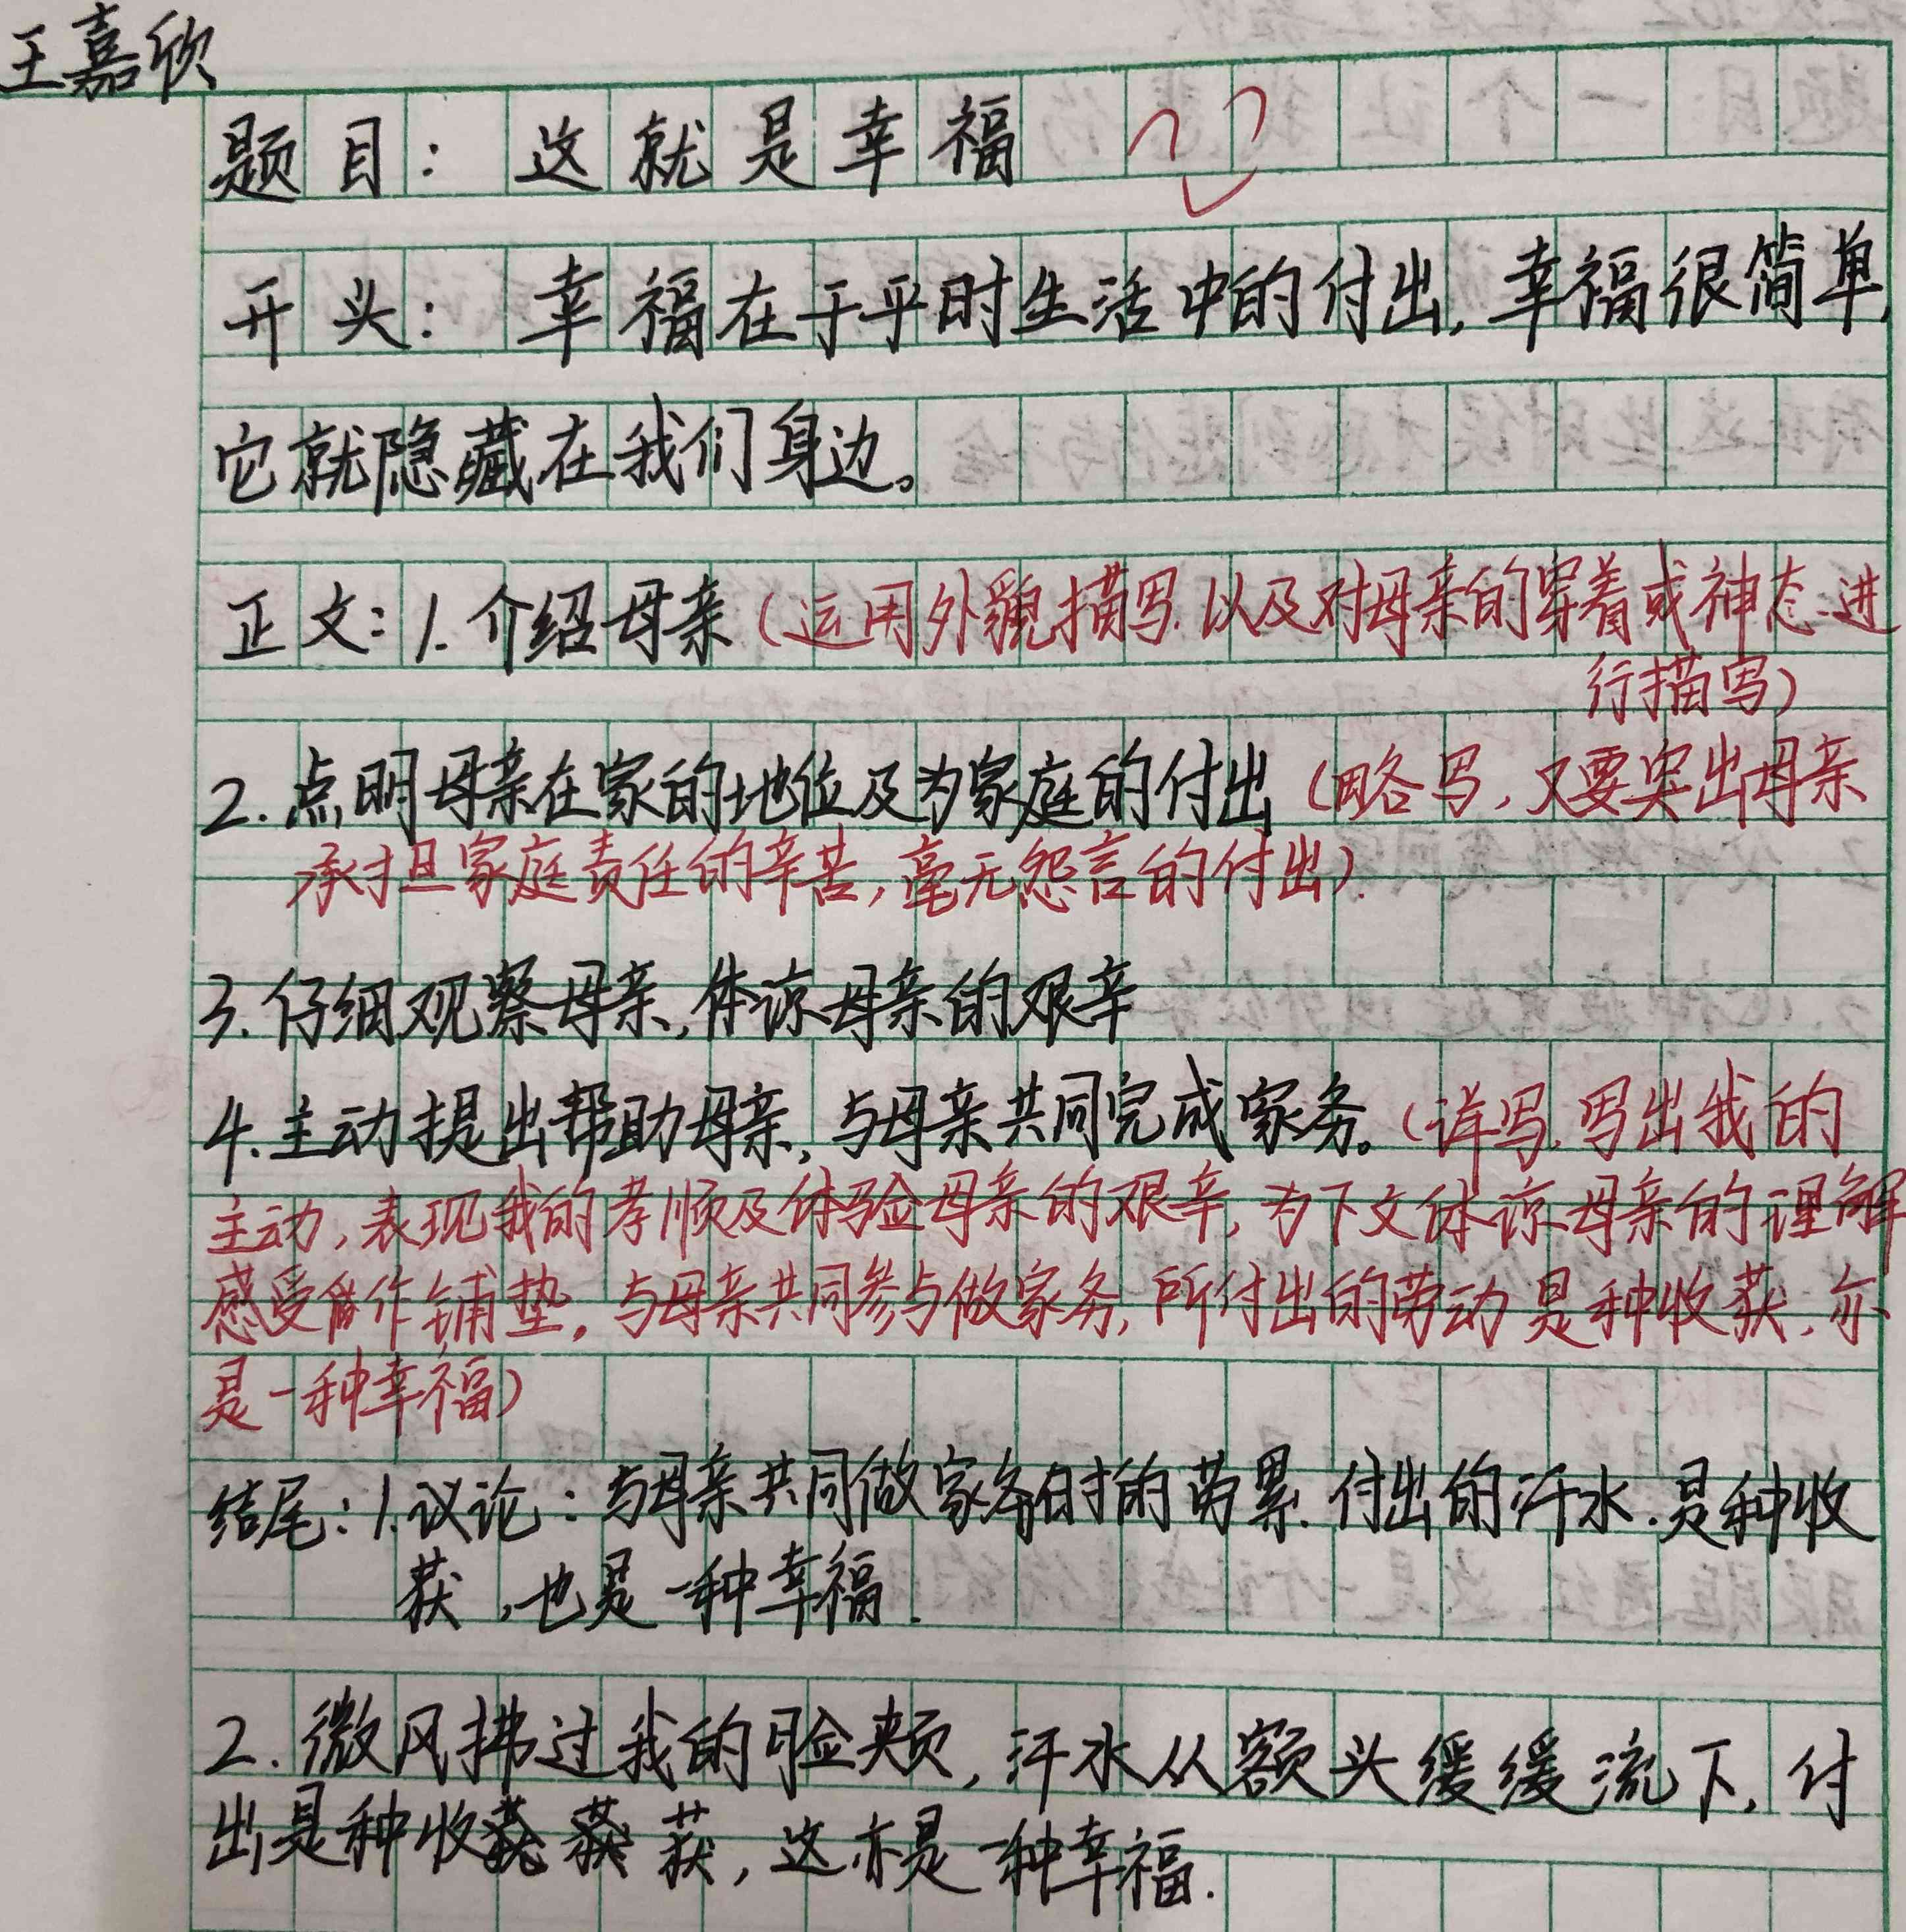 王嘉欣
题目：这就是幸福
开头：幸福在于平时生活中的付出，幸福很简单，
它就隐藏在我们身边。
正文：1.介绍母亲（运用外貌描写.以及对母亲的穿着或神态进
行描写）
2.点明母亲在家的地位及为家庭的付出（略写，又要突出母亲
承担家庭责任的辛苦，毫无怨言的付出）.
3.仔细观察母亲，体谅母亲的艰辛
4.主动提出帮助母亲，与母亲共同完成家务。（详写.写出我的
主动，表现我的孝顺及体验母亲的艰辛，为下文体谅母亲的理解
感受作铺垫，与母亲共同参与做家务，所付出的劳动是种收获，亦
是一种幸福）
结尾：1.议论：与母亲共同做家务时的劳累.付出的汗水.是种收
获，也是一种幸福.
2.微风拂过我的脸颊，汗水从额头缓缓流下，付
出是种收获，这亦是一种幸福.